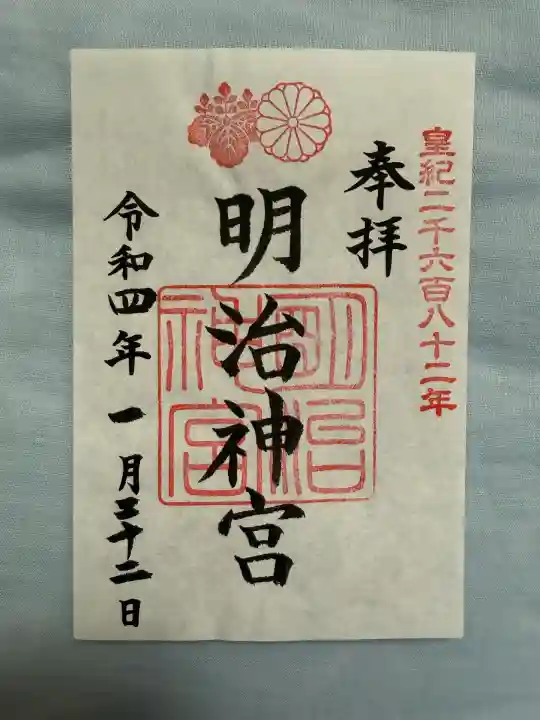 皇紀二千六百八十二年
奉拝
明治神宮
明治神宮
令和四年一月三十二日